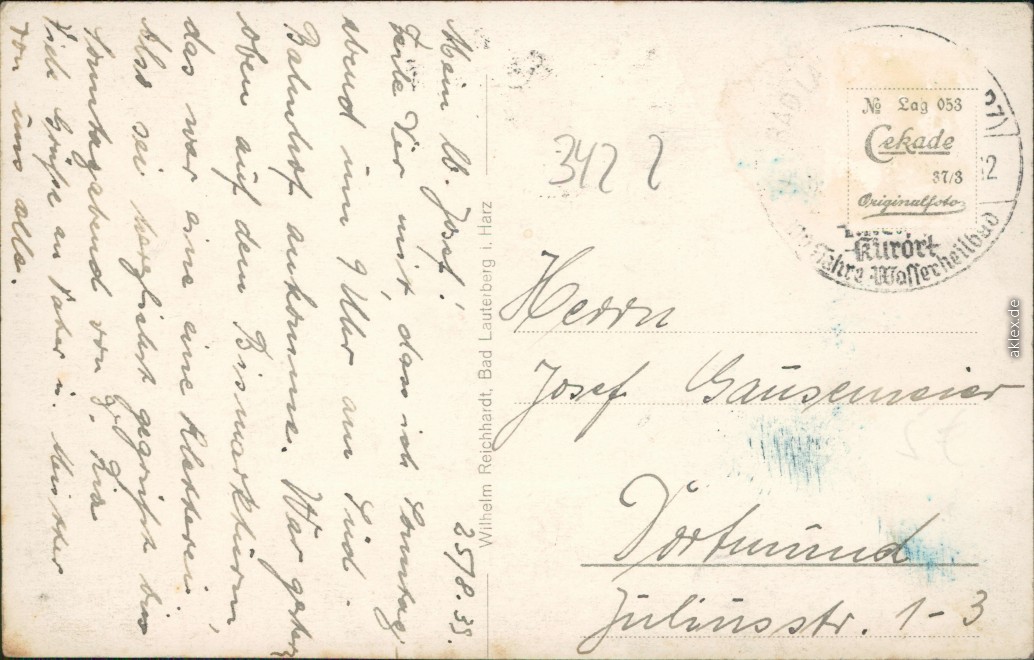 25/8.39.
Mein lb. Josef!
Teile Dir mit, dass ich Sonntag-
abend um 9 Uhr am Süd-
Bahnhof ankomme. War gestern
oben auf dem Bismarkturm,
das war eine eine Kletterei
Also sei herzlichst gegrüsst bis
Sonntagabend von
Viele Grüße an Vater u. Mutter
von uns alle.
Wilhelm Reichhardt, Bad Lauterberg i. Harz
342 2
№ Lag 053
Cekade
37/3
Originalfoto
Kurort
Jahre Wasserheilbad
Herrn
Josef Gausemeier
Dortmund
Juliusstr. 1-3
aklex.de